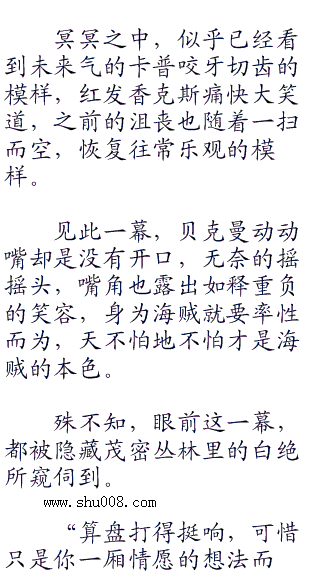 冥冥之中，似乎已经看
到未来气的卡普咬牙切齿的
模样，红发香克斯痛快大笑
道，之前的沮丧也随着一扫
而空，恢复往常乐观的模
样。
见此一幕，贝克曼动动
嘴却是没有开口，无奈的摇
摇头，嘴角也露出如释重负
的笑容，身为海贼就要率性
而为，天不怕地不怕才是海
贼的本色。
殊不知，眼前这一幕，
都被隐藏茂密丛林里的白绝
所窥伺到。
www.shu008.com
“算盘打得挺响，可惜
只是你一厢情愿的想法而